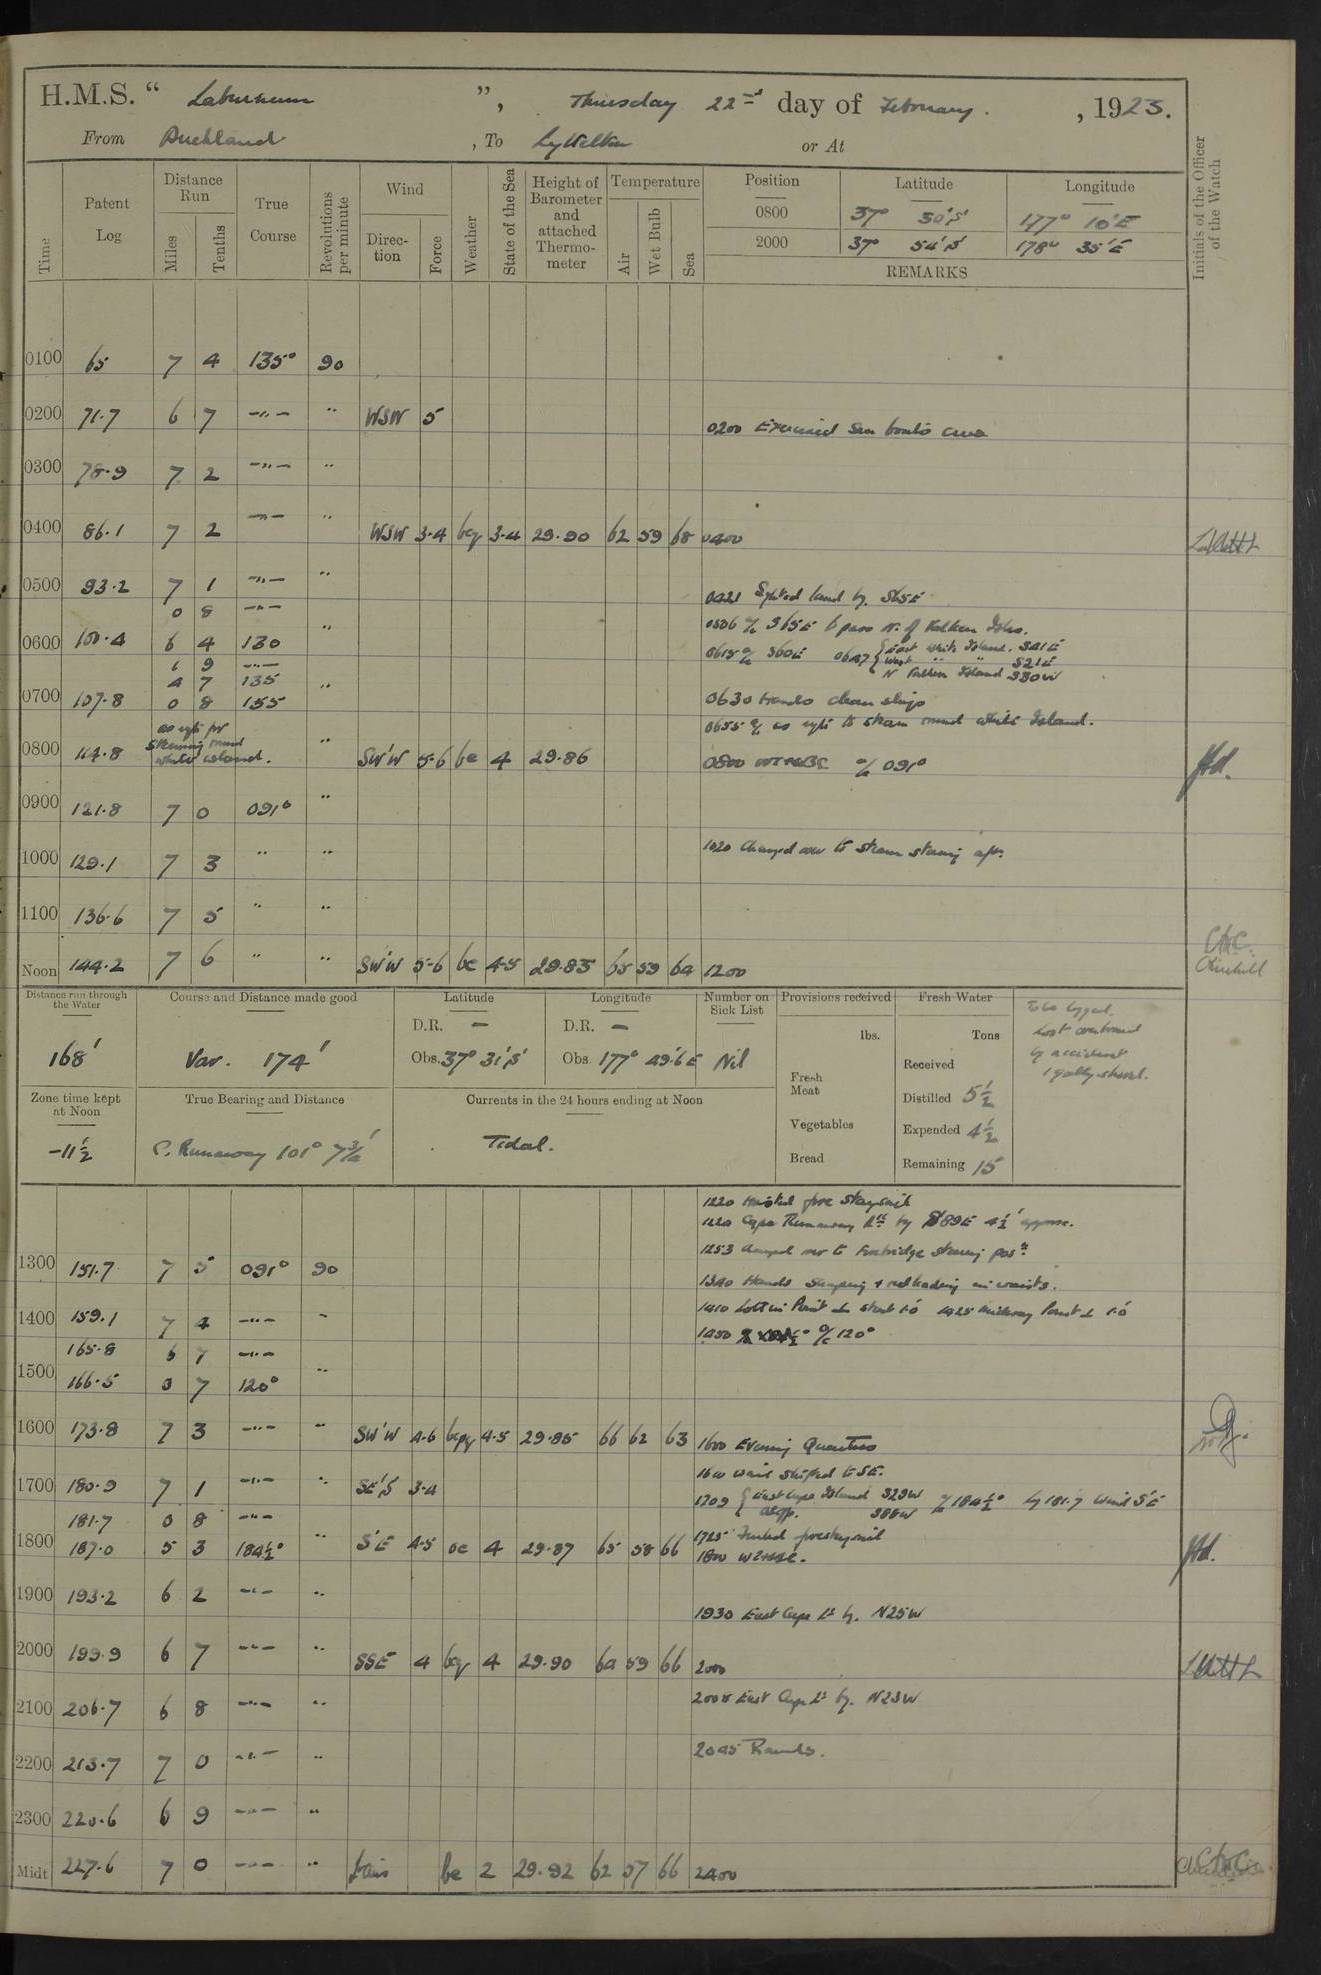 H.M.S. “ Laburnum ”, Thursday 22nd day of February. , 1923.
From Auckland , To Lyttelton or At
Time
Patent Log
Distance Run
Miles
Tenths
True Course
Revolutions per minute
Wind
Direction
Force
Weather
State of the Sea
Height of Barometer and attached Thermometer
Temperature
Air
Wet Bulb
Sea
Position Latitude Longitude
0800 37° 50'S 177° 10'E
2000 37° 54'S 178° 35'E
REMARKS
Initials of the Officer of the Watch
0100 65 7 4 135° 90
0200 71.7 6 7 —"— " WSW 5
0200 Exercised Sea boats crew
0300 78.9 7 2 —"— "
0400 86.1 7 2 —"— " WSW 3-4 bcq 3-4 29.90 62 59 68 0400
0500 93.2 7 1 —"— "
0421 Sighted land bg. S65E
0 8 —"—
0506 a/c S65E to pass N. of Islds.
0600 100.4 6 4 130 "
0615 a/c S60E 0647 { East White Island. S41E
West " " S21E
N Island S80W
1 9 —"—
4 7 135
0700 107.8 0 8 155 "
0630 Hands clean ship
0655 a/c as reqte to steam round White Island.
as reqte for
steaming round
White island.
0800 114.8 " SW'W 5-6 bc 4 29.86
0800 a/c 091°
0900 121.8 7 0 091° "
1000 129.1 7 3 " "
1020 Changed over to steam steering aft.
1100 136.6 7 5 " "
Noon 144.2 7 6 " " SW'W 5-6 bc 4-5 29.83 65 59 64 1200
Distance run through the Water
168'
Course and Distance made good
Var. 174'
Latitude
D.R. —
Obs. 37° 31'S
Longitude
D.R. —
Obs. 177° 49.6'E
Number on Sick List
Nil
Provisions received
lbs.
Fresh Meat
Vegetables
Bread
Fresh Water
Tons
Received
Distilled 5½
Expended 4½
Remaining 15
To be logged.
Lost overboard
by accident
1 galley shovel.
Zone time kept at Noon
-11½
True Bearing and Distance
C. Runaway 101° 7¾'
Currents in the 24 hours ending at Noon
Tidal.
1220 Hoisted fore staysail
1220 Cape Runaway Lt by S89E 4½' approx.
1253 changed over to Forebridge steering posn.
1300 151.7 7 5 091° 90
1340 Hands scraping & redleading in waists.
1400 159.1 7 4 —"— "
1410 Lottin Point ⊥ 1.6 1425 Midway Point ⊥ 1.6
165.8 6 7 —"—
1450 a/c 120°
1500 166.5 0 7 120° "
1600 173.8 7 3 —"— " SW'W 4-6 bcpq 4-5 29.85 66 62 63 1600 Evening Quarters
1610 Wind shifted to SE.
1700 180.9 7 1 —"— " SE'S 3-4
1709 { East Cape Island S29W
S86W a/c 184½° Lg 181.7 Wind S'E
181.7 0 8 —"—
1725 Furled forestaysail
1800 187.0 5 3 184½° " S'E 4-5 bc 4 29.87 65 58 66
1900 193.2 6 2 —"— "
1930 East Cape Lt bg. N25W
2000 199.9 6 7 —"— " SSE 4 bcq 4 29.90 64 59 66 2000
2008 East Cape Lt bg. N23W
2100 206.7 6 8 —"— "
2045 Rounds.
2200 213.7 7 0 —"— "
2300 220.6 6 9 —"— "
Midt 227.6 7 0 —"— " bc 2 29.92 62 57 66 2400